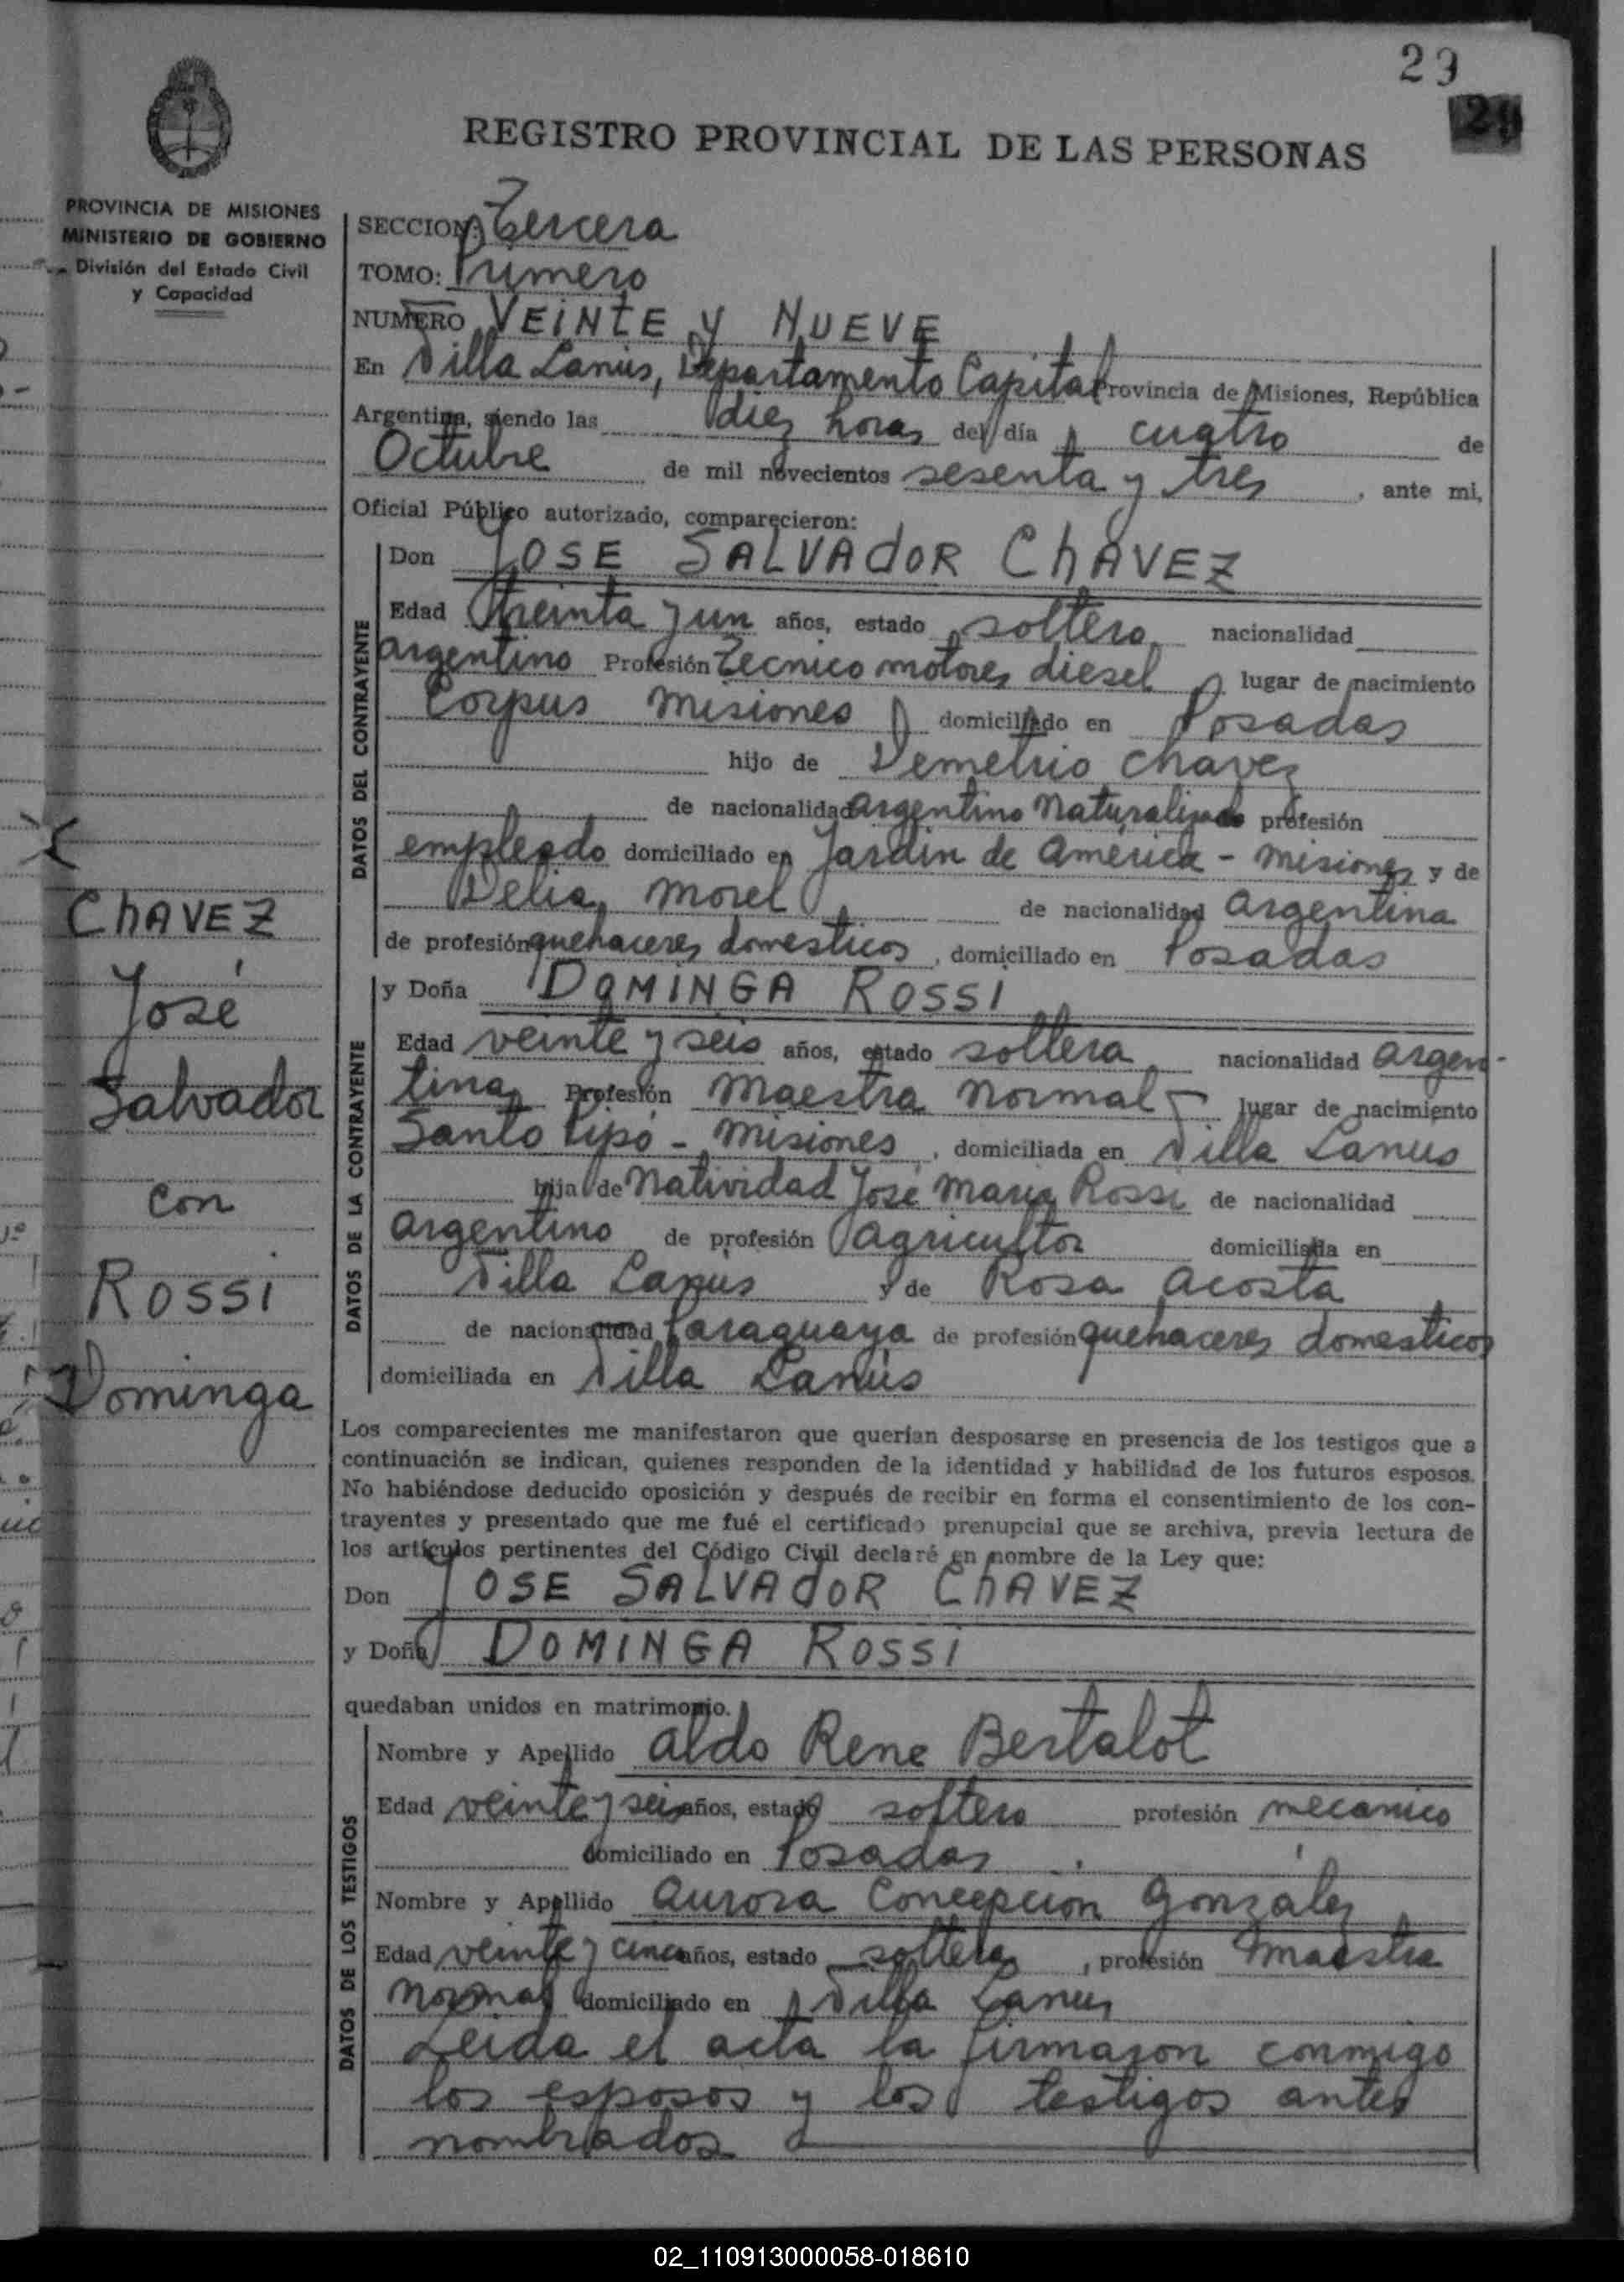 29
29
REGISTRO PROVINCIAL DE LAS PERSONAS
PROVINCIA DE MISIONES
MINISTERIO DE GOBIERNO
División del Estado Civil
y Capacidad
SECCION: Tercera
TOMO: Primero
NUMERO VEINTE y NUEVE
En Villa Lanús, Departamento Capital Provincia de Misiones, República
Argentina, siendo las diez horas del día cuatro de
Octubre de mil novecientos sesenta y tres, ante mi,
Oficial Público autorizado, comparecieron:
DATOS DEL CONTRAYENTE
Don JOSE SALVADOR CHAVEZ
Edad treinta y un años, estado soltero, nacionalidad
argentino Profesión Tecnico motores diesel lugar de nacimiento
Corpus Misiones domiciliado en Posadas
hijo de Demetrio Chavez
de nacionalidad argentino Naturalizado profesión
empleado domiciliado en Jardín de America - Misiones y de
Delia Morel de nacionalidad argentina
de profesión quehaceres domesticos, domiciliado en Posadas
DATOS DE LA CONTRAYENTE
y Doña DOMINGA ROSSI
Edad veinte y seis años, estado soltera nacionalidad argen-
tina, Profesión Maestra Normal lugar de nacimiento
Santo Pipó - Misiones, domiciliada en Villa Lanus
hija de Natividad José María Rossi de nacionalidad
argentino de profesión Agricultor domiciliada en
Villa Lanus y de Rosa Acosta
de nacionalidad Paraguaya de profesión quehaceres domesticos
domiciliada en Villa Lanús
Los comparecientes me manifestaron que querían desposarse en presencia de los testigos que a
continuación se indican, quienes responden de la identidad y habilidad de los futuros esposos.
No habiéndose deducido oposición y después de recibir en forma el consentimiento de los con-
trayentes y presentado que me fué el certificado prenupcial que se archiva, previa lectura de
los artículos pertinentes del Código Civil declaré en nombre de la Ley que:
Don JOSE SALVADOR CHAVEZ
y Doña DOMINGA ROSSI
quedaban unidos en matrimonio.
DATOS DE LOS TESTIGOS
Nombre y Apellido Aldo Rene Bertalot
Edad veinte y seis años, estado soltero profesión mecanico
domiciliado en Posadas.
Nombre y Apellido Aurora Concepcion Gonzalez
Edad veinte y cinco años, estado soltera, profesión Maestra
Normal domiciliado en Villa Lanus
Leida el acta la firmaron conmigo
los esposos y los testigos antes
nombrados
CHAVEZ
José
Salvador
con
ROSSI
Dominga
02_110913000058-018610